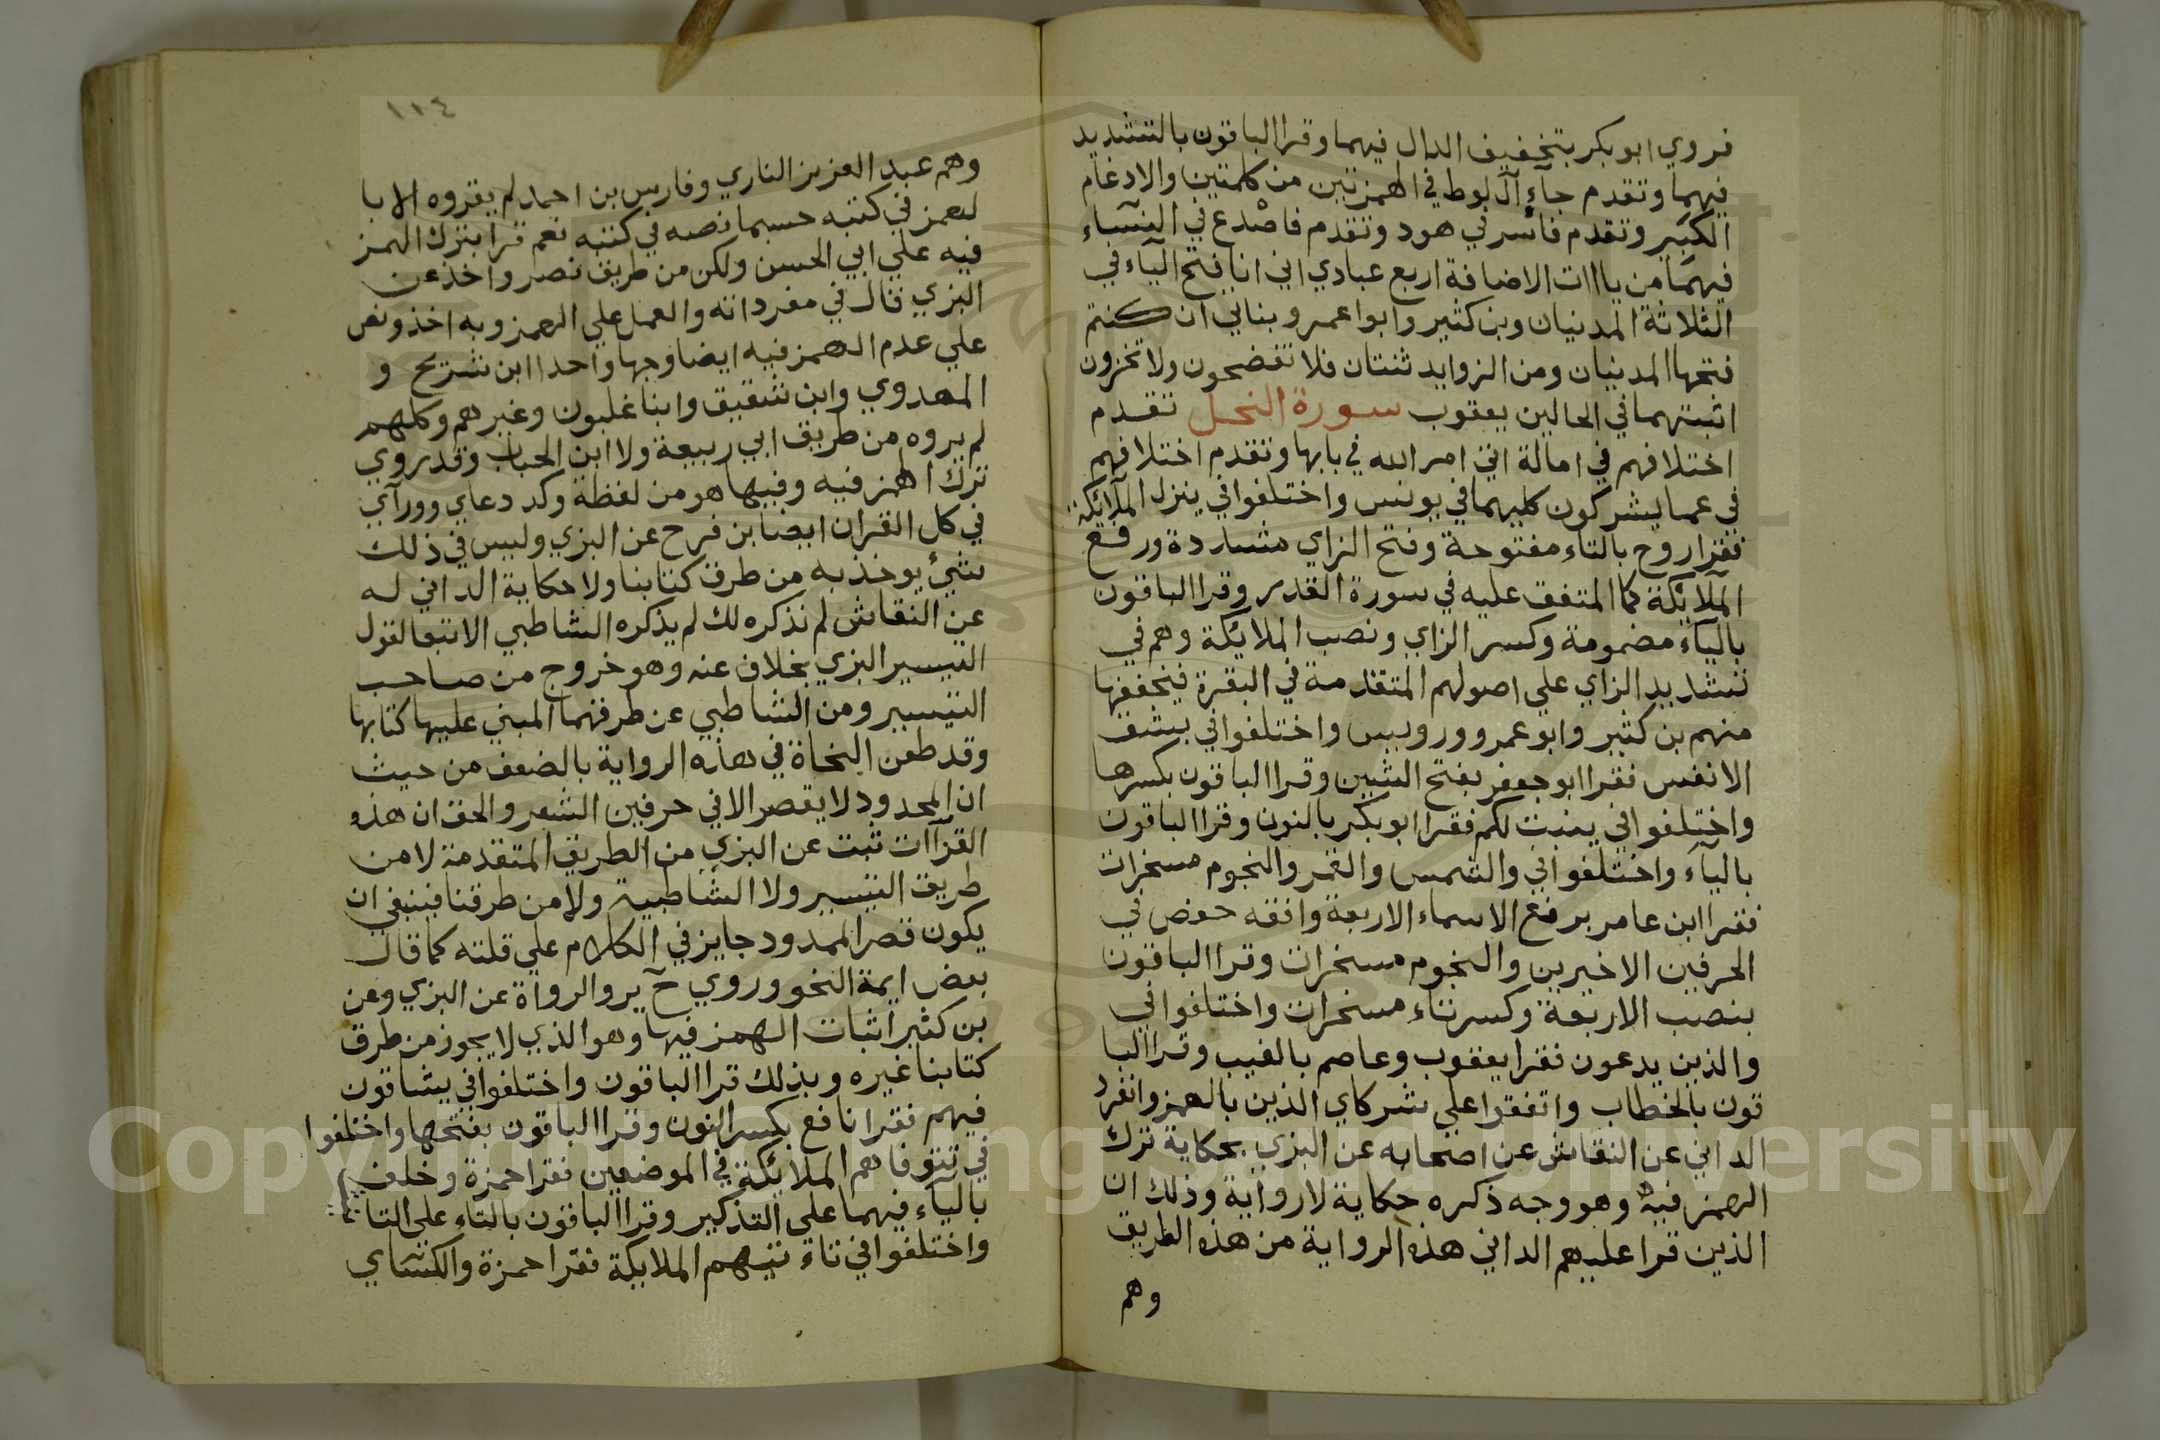 فروي ابو بكر بتخفيف الدال فيهما وقرا الباقون بالتشديد
فيهما وتقدم جآء آل لوط في الهمزتين من كلمتين والادغام
الكبير وتقدم فاسر في هود وتقدم فاصدع في النسآء
فيهما من ياات الاضافة اربع عبادي اني انا فتح اليآء في
الثلاثة المدنيان وبن كثير وابوا عمرو بناتي ان كنتم
فتحها المدنيان ومن الزوايد ثنتان فلا تفضحون ولا تخزون
اثبتهما في الحالين يعقوب سورة النحل تقدم
اختلافهم في امالة اتي امر الله في بابها وتقدم اختلافهم
في عما يشركون كليهما في يونس واختلفوا في ينزل الملآئكة
فقرا روح بالتاء مفتوحة وفتح الزاي مشددة ورفع
الملآئكة كما المتفق عليه في سورة القدر وقرا الباقون
باليآء مضمومة وكسر الزاي ونصب الملايكة وهم في
تشديد الزاي علي اصولهم المتقدمة في البقرة فيخففها
منهم بن كثير وابو عمرو ورويس واختلفوا في بشق
الانفس فقرا ابو جعفر بفتح الشين وقرا الباقون بكسرها
واختلفوا في ينبت لكم فقرا ابو بكر بالنون وقرا الباقون
باليآء واختلفوا في والشمس والقمر والنجوم مسخرات
فقرا ابن عامر برفع الاسماء الاربعة وافقه حفص في
الحرفين الاخيرين والنجوم مسخرات وقرا الباقون
بنصب الاربعة وكسر تاء مسخرات واختلفوا في
والذين يدعون فقرا يعقوب وعاصم بالغيب وقرا البا
قون بالخطاب واتفقوا علي شركاي الذين بالهمز وانفرد
الداني عن النقاش عن اصحابه عن البزي بحكاية ترك
الهمز فيه وهو وجه ذكره حكاية لا رواية وذلك ان
الذين قرا عليهم الداني هذه الرواية من هذه الطريق
وهم
١١٤
وهم عبد العزيز الناري وفارس بن احمد لم يقروه الا با
لهمز في كتبه حسبما نصه في كتبه نعم قرا بترك الهمز
فيه علي ابي الحسن ولكن من طريق نصر واخذ عن
البزي قال في مفرداته والعمل علي الهمز وبه اخذ ونص
علي عدم الهمز فيه ايضا وجها واحدا ابن شريح و
المهدوي وابن شقيق وابنا غلبون وغيرهم وكلهم
لم يروه من طريق ابي ربيعة ولا ابن الحباب وقد روي
ترك الهمز فيه وفيها هو من لفظه وكد دعاي وورآي
في كل القران ايضا بن فرح عن البزي وليس في ذلك
شئ يوخذ به من طرق كتابنا ولا حكاية الداني له
عن النقاش لم نذكره لك لم يذكره الشاطبي الا تبعا لقول
التيسير البزي بخلاف عنه وهو خروج من صاحب
التيسير ومن الشاطبي عن طرقهما المبني عليها كتابها
وقد طعن النحاة في هذه الرواية بالضعف من حيث
ان المحدود لا يقصر الا في حرفين الشعر والحق ان هذه
القرآات ثبت عن البزي من الطريق المتقدمة لا من
طريق التيسير ولا الشاطبية ولا من طرقنا فينبغي ان
يكون قصر الممدود جايز في الكلام علي قلته كما قال
بعض ايمة النحو وروي سآير الرواة عن البزي وعن
بن كثير اثبات الهمز فيها وهو الذي لا يجوز من طرق
كتابنا غيره وبذلك قرا الباقون واختلفوا في يشاقون
فيهم فقرا نافع بكسر النون وقرا الباقون بفتحها واختلفوا
في تتوفاهم الملائكة في الموضعين فقرا حمزة وخلف
باليآء فيهما علي التذكير وقرا الباقون بالتاء علي التا
واختلفوا في تاء تتيهم الملايكة فقرا حمزة والكسآي
Copyright © King Saud University